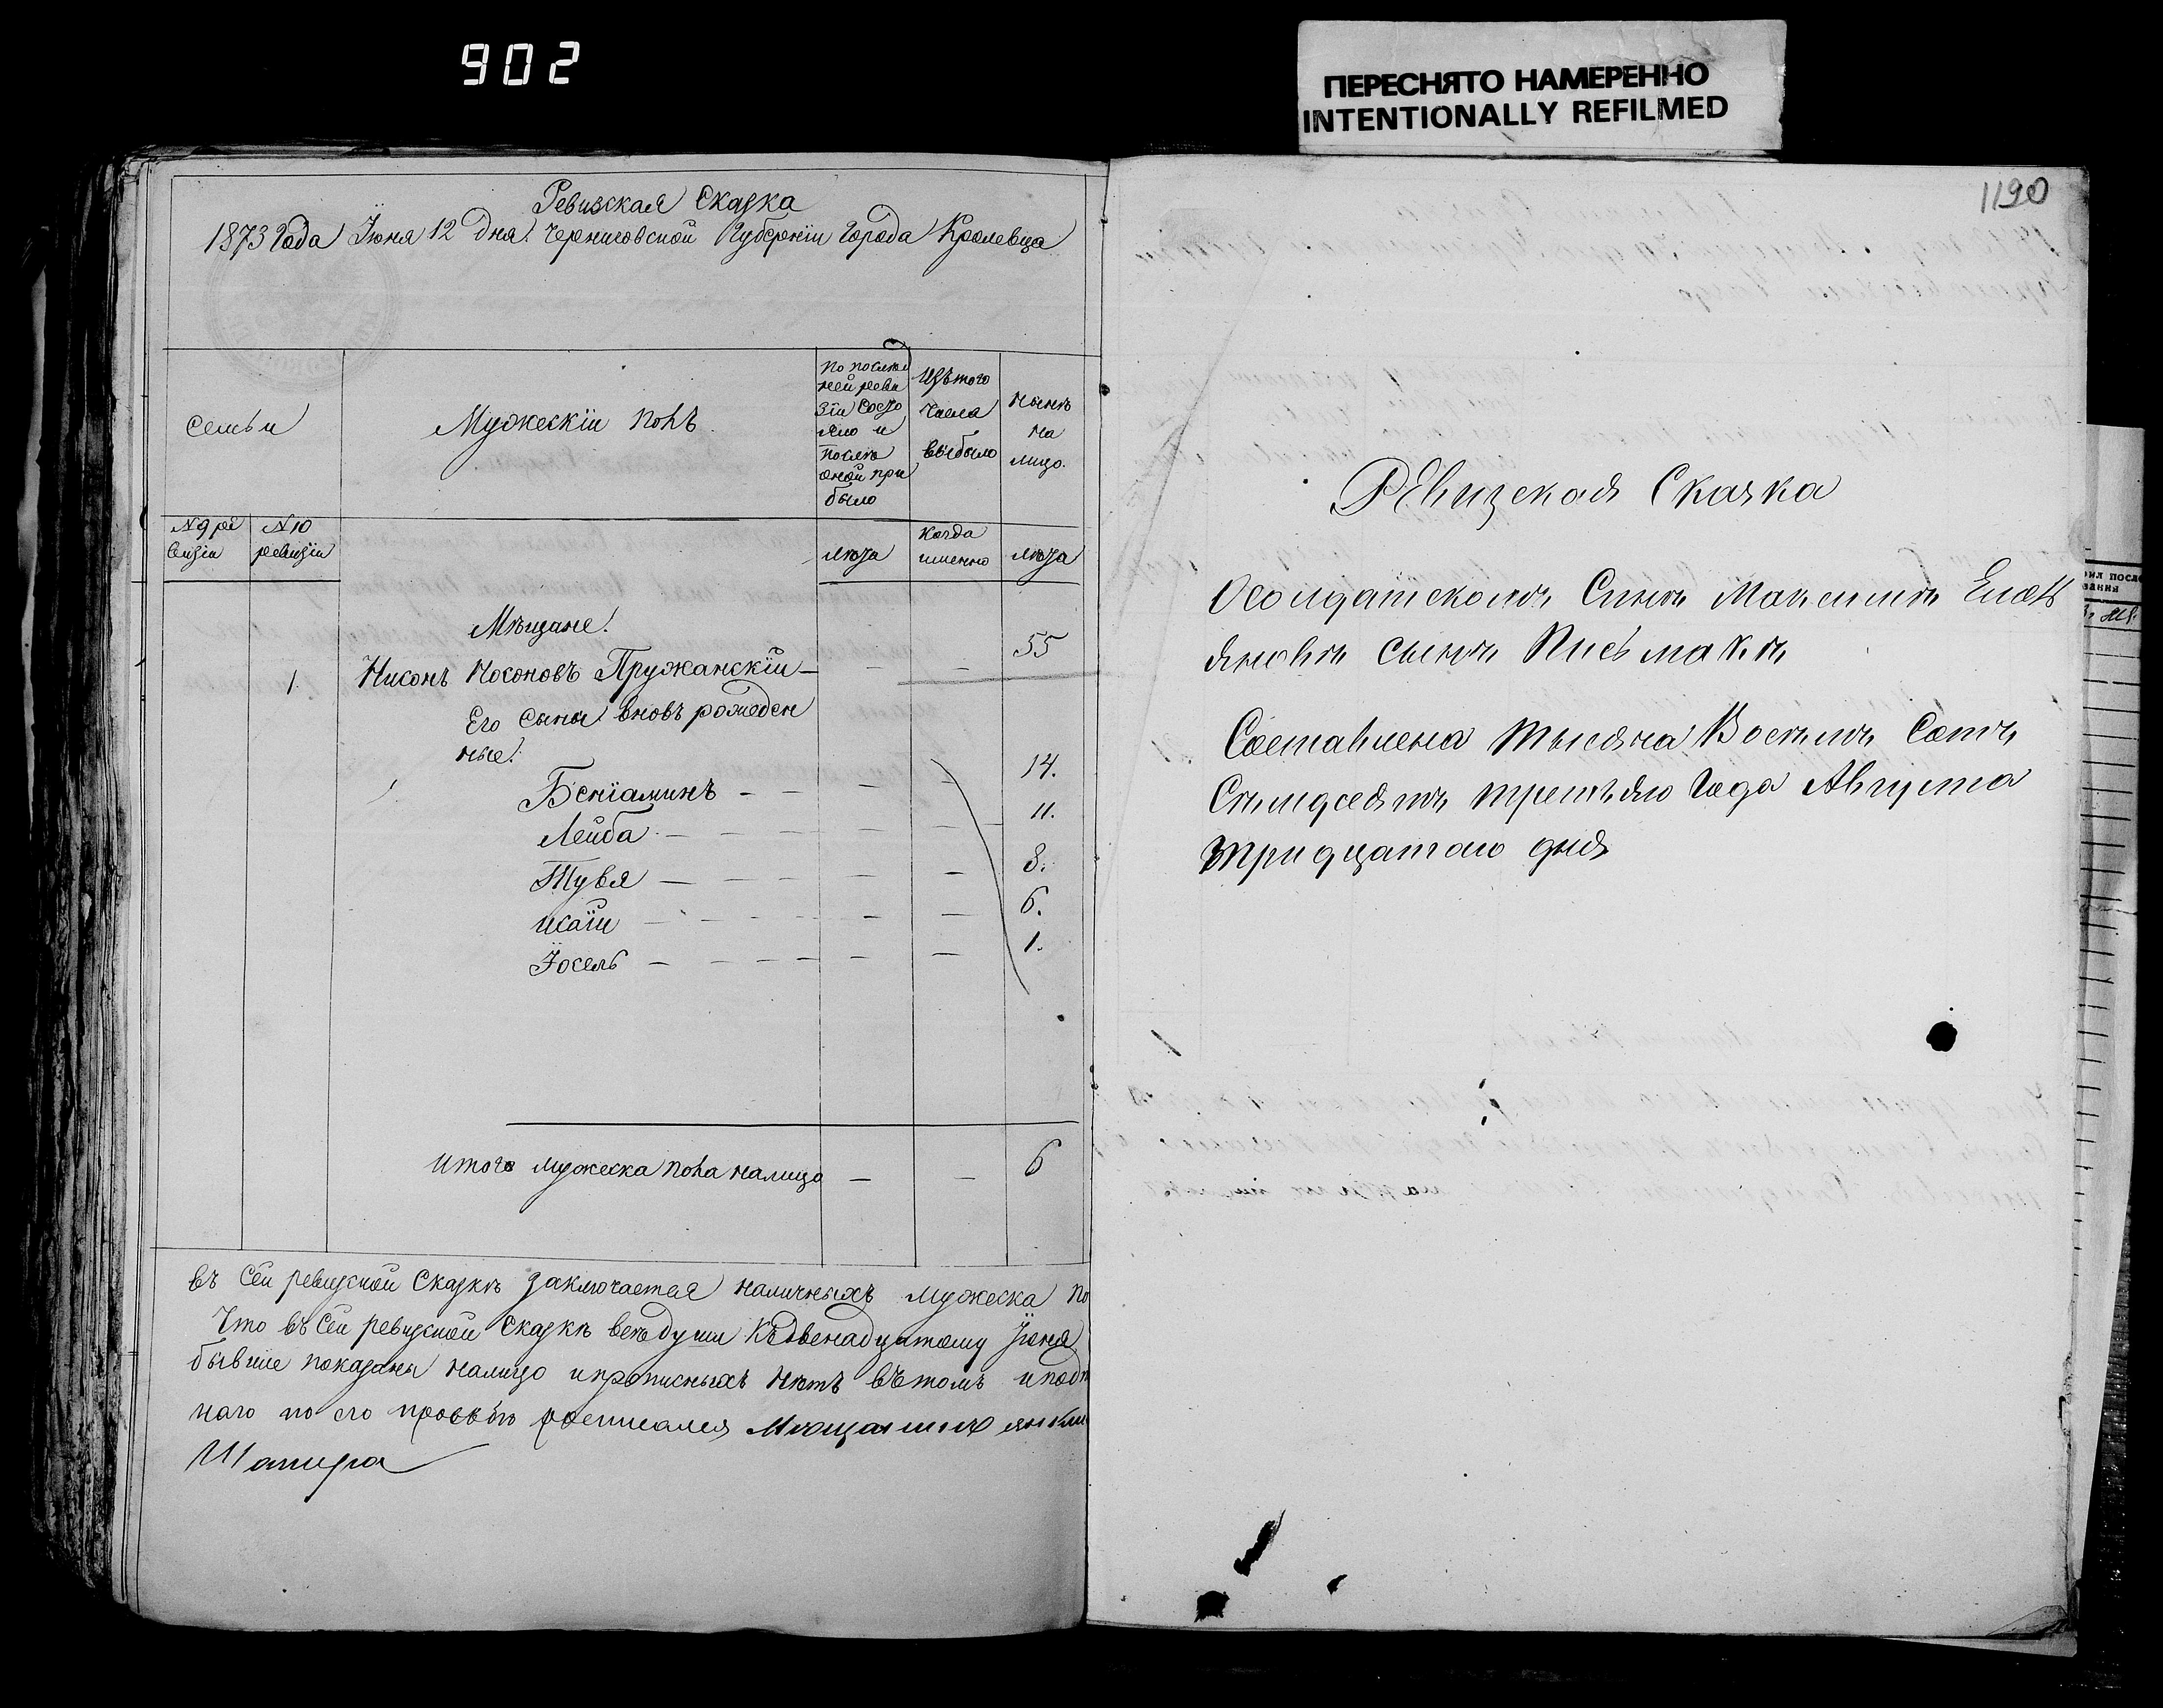 902
ПЕРЕСНЯТО НАМЕРЕННО
INTENTIONALLY REFILMED
Ревизская Сказка
1873 Года Июня 12 дня. Черниговской Губернiи Города Кролевца
Семьи
Мужескiи полъ
по послѣд
ней реви
зiи состо
яло и
послѣ
оной при
было
Изъ того
числа
выбыло
Нынѣ
на
лицо.
№ 9 ре
визiи
№ 10
ревизiи
лѣта
когда
именно
лѣта
Мѣщане.
1. Никонъ Носоновъ Пружанскiи — — — 55
Его сыны вновь рожден
ные:
Бенiаминъ — — — — 14.
Лейба — — — — — 11.
Тувя — — — — — 8.
Исаiи — — — — — 6.
Iосель — — — — — 1.
Итого мужеска пола налицо — — 6
въ Сей ревизской Сказкѣ заключается наличныхъ мужеска по
Что въ сей ревизской сказкѣ всѣ души къ двенадцатому Iюня
бывшие показаны налицо и прописныхъ нѣтъ въ томъ и подп
наго по его прозбѣ росписался Мѣщанинъ
Шапира
1190
Ревизская Сказка
О солдатскомъ Сынѣ Максимѣ Емель
яновѣ сынѣ Письмакѣ
Составлена тысяча Восемь Сотъ
Семдесятъ третьяго Года Августа
тридцатаго дня